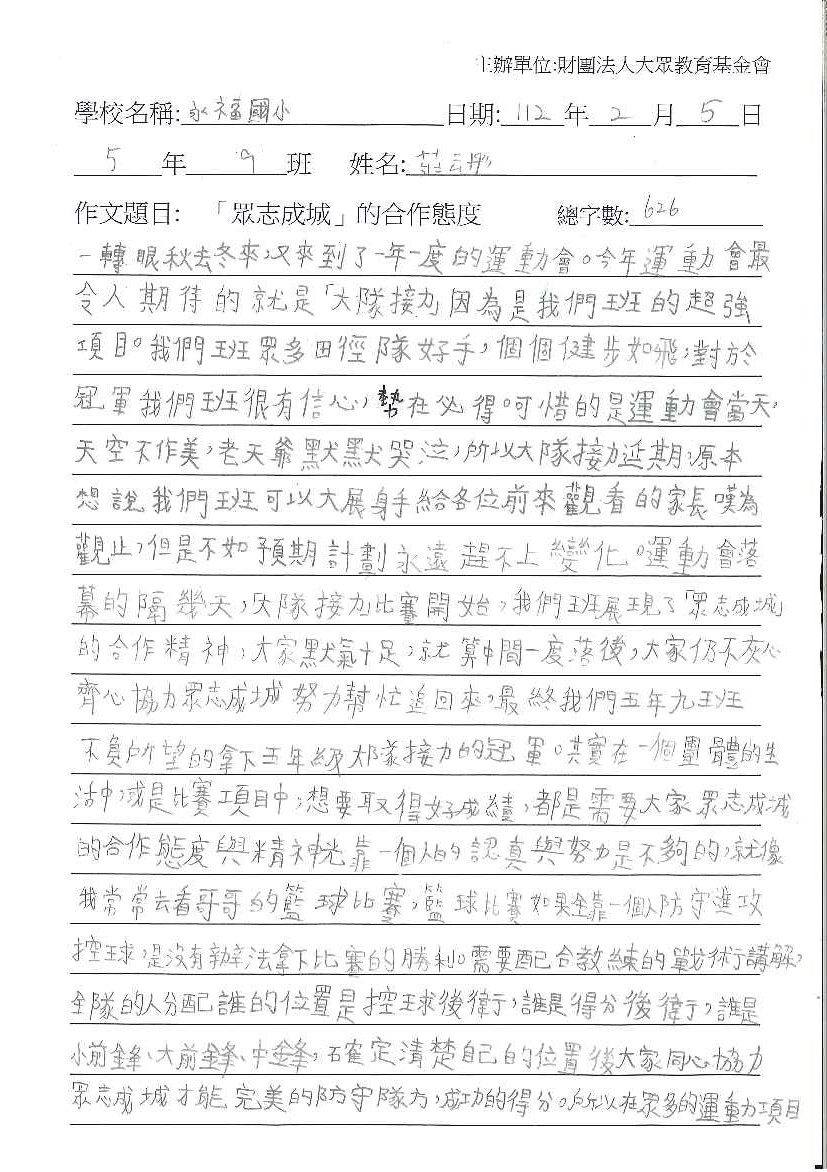 主辦單位:財團法人大眾教育基金會
學校名稱: 永福國小 日期: 112 年 2 月 5 日
5 年 9 班 姓名: 莊云彤
作文題目: 「眾志成城」的合作態度 總字數: 626
一轉眼秋去冬來,又來到了一年一度的運動會。今年運動會最
令人期待的就是「大隊接力」因為是我們班的超強
項目。我們班眾多田徑隊好手,個個健步如飛,對於
冠軍我們班很有信心,勢在必得。可惜的是運動會當天,
天空不作美,老天爺默默哭泣,所以大隊接力延期,原本
想說我們班可以大展身手給各位前來觀看的家長嘆為
觀止,但是不如預期計劃永遠趕不上變化。運動會落
幕的隔幾天,大隊接力比賽開始,我們班展現了「眾志成城」
的合作精神,大家默氣十足,就算中間一度落後,大家仍不灰心
齊心協力眾志成城努力幫忙追回來,最終我們五年九班班
不負所望的拿下五年級大隊接力的冠軍。其實在一個團體的生
活中,或是比賽項目中,想要取得好成績,都是需要大家眾志成城
的合作態度與精神光靠一個人的認真與努力是不夠的,就像
我常常去看哥哥的籃球比賽,籃球比賽如果全靠一個人防守進攻
控球,是沒有辦法拿下比賽的勝利。需要配合教練的戰術講解,
全隊的人分配誰的位置是控球後衛,誰是得分後衛,誰是
小前鋒、大前鋒、中鋒,確定清楚自己的位置後大家同心協力
眾志成城才能完美的防守隊方,成功的得分。所以在眾多的運動項目